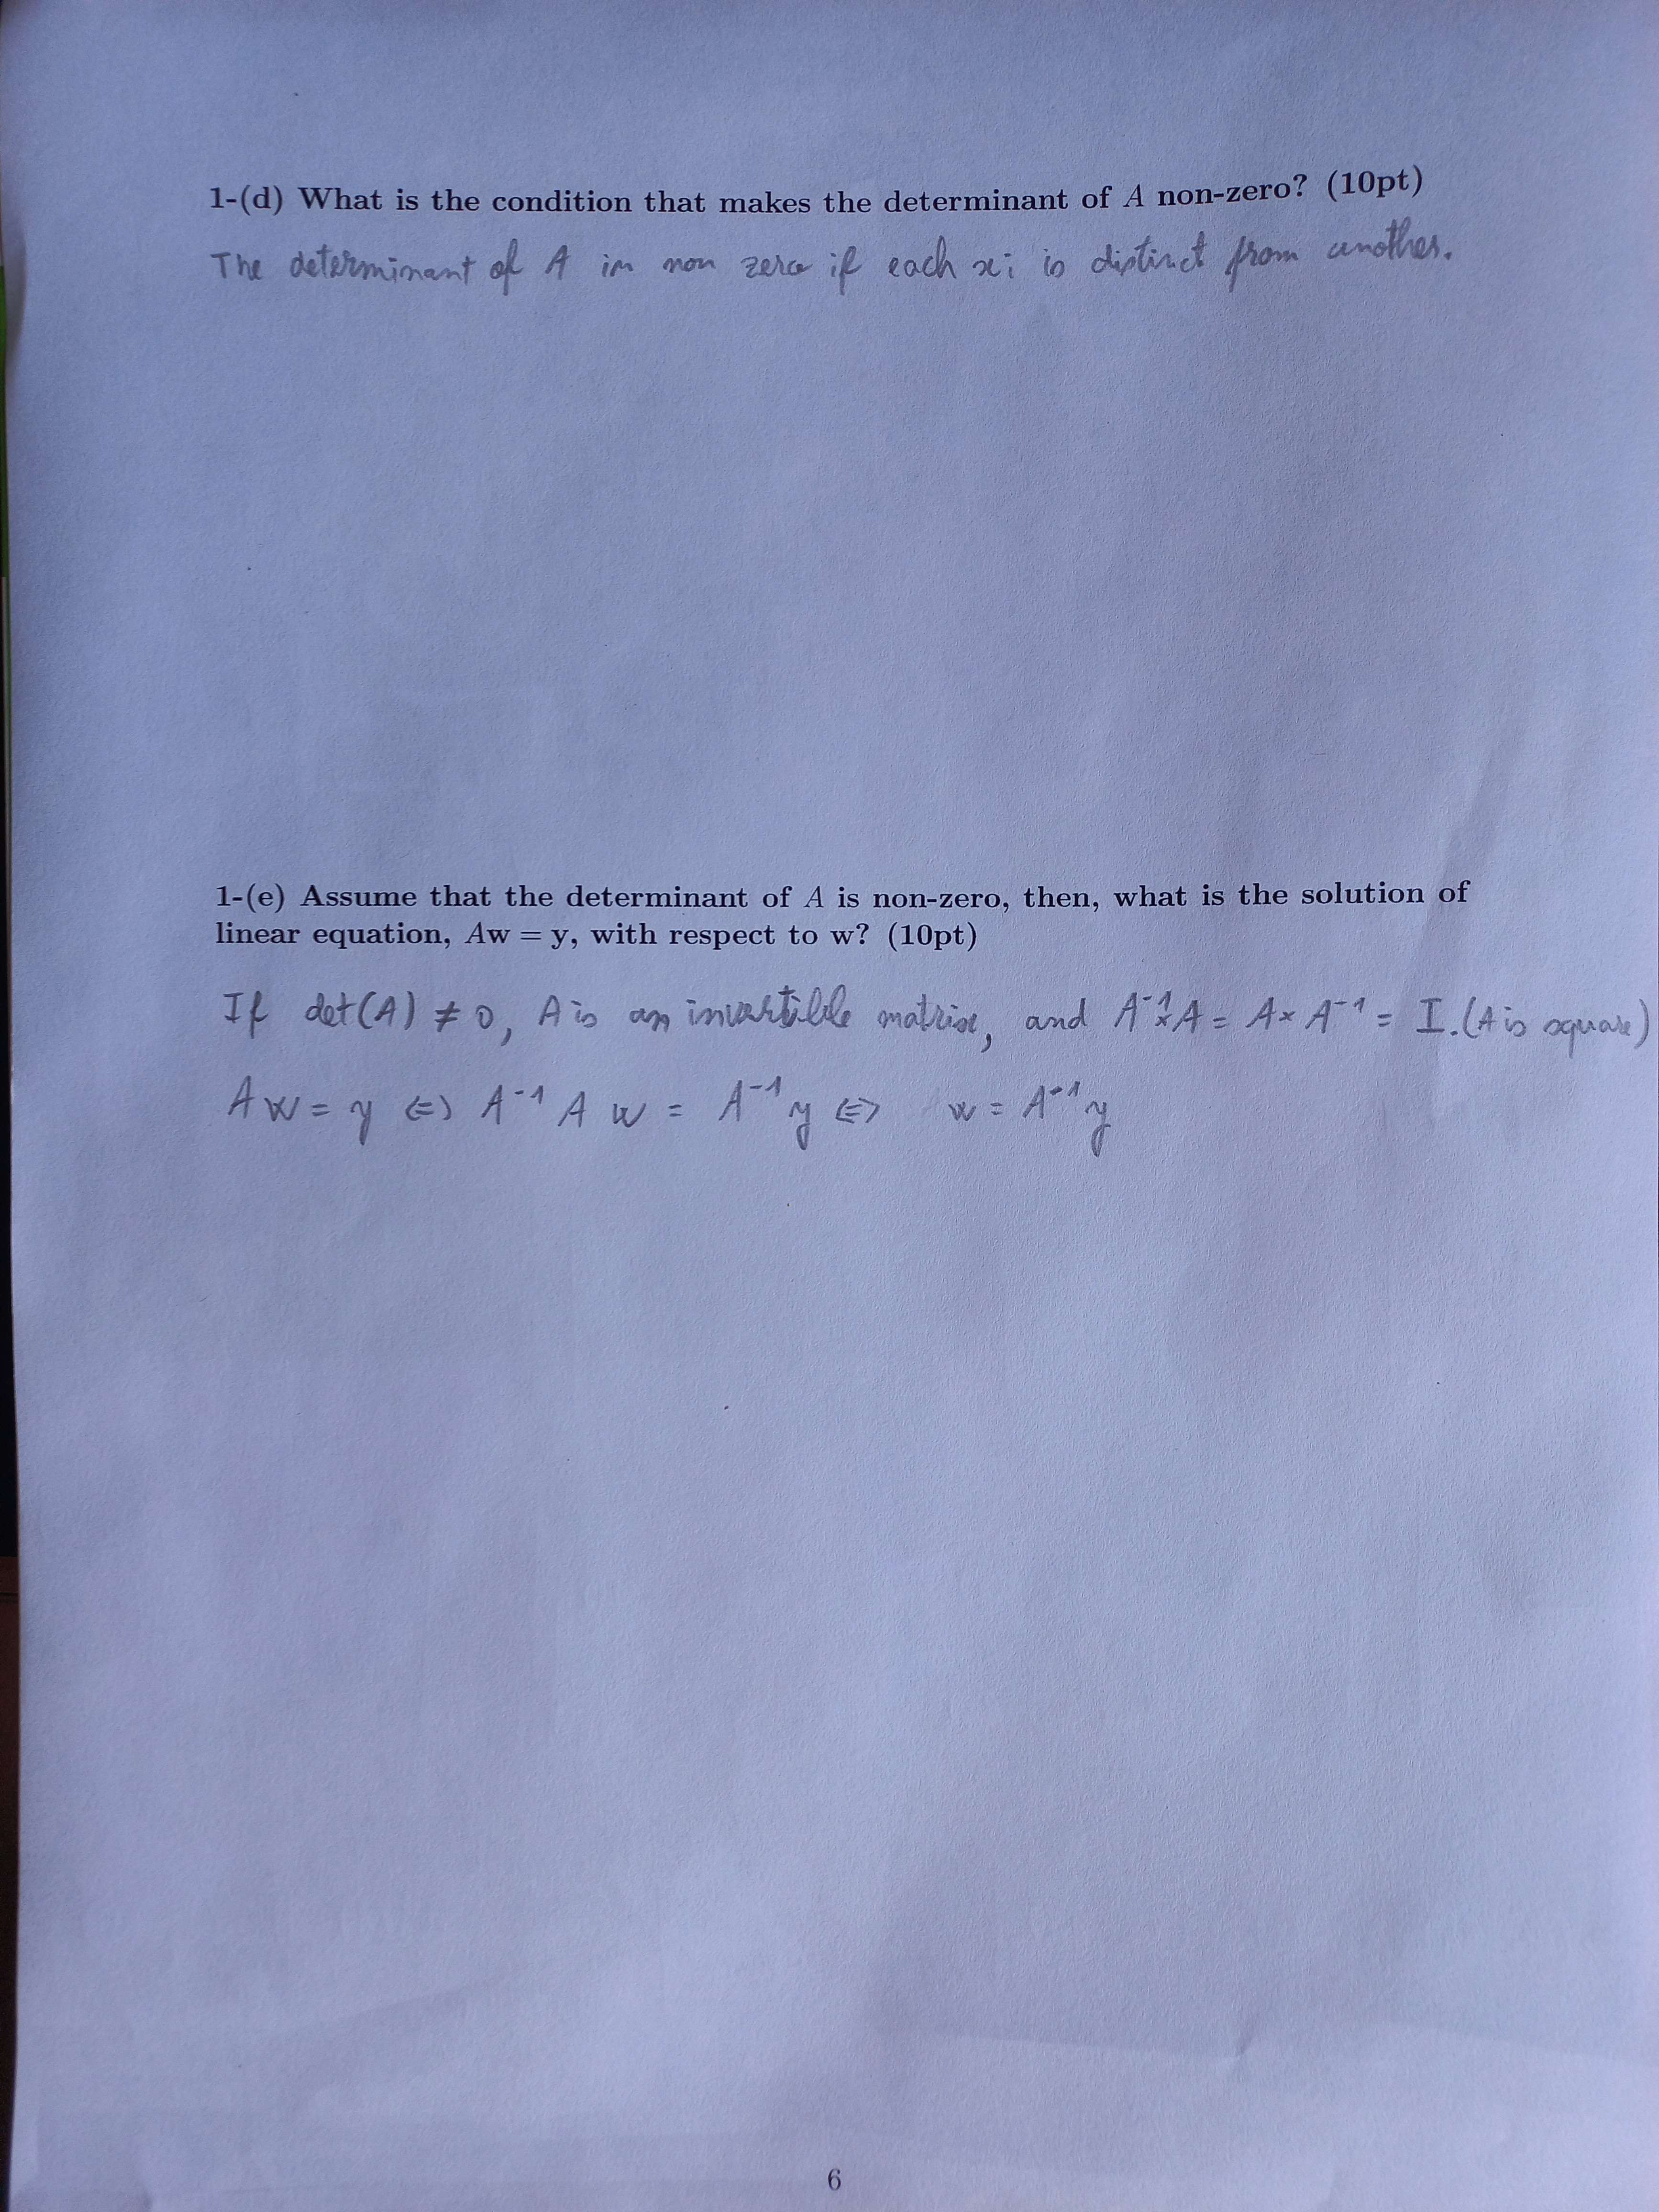 1-(d) What is the condition that makes the determinant of A non-zero? (10pt)
The determinant of A is non zero if each xi is distinct from another.
1-(e) Assume that the determinant of A is non-zero, then, what is the solution of
linear equation, Aw = y, with respect to w? (10pt)
If det(A) ≠ 0, A is an invertible matrix, and A⁻¹×A = A×A⁻¹ = I. (A is square)
Aw = y ⇔ A⁻¹ A w = A⁻¹y ⇔ w = A⁻¹y
6